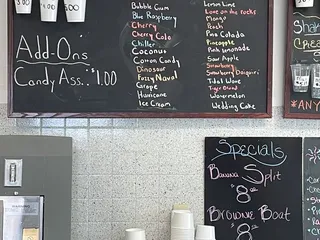 3.00
5.00
Add-Ons
Candy Ass.. $1.00
Bubble Gum
Blue Raspberry
Cherry
Cherry Cola
Chiller
Coconut
Cotton Candy
Dinosaur
Fuzzy Naval
Grape
Hurricane
Ice Cream
Lemon Lime
Love on the rocks
Mango
Peach
Pina Colada
Pineapple
Pink lemonade
Sour Apple
Strawberry
Strawberry Daiquiri
Tidal Wave
Tiger Blood
Watermelon
Wedding Cake
Specials
Banana Split
$8
Brownie Boat
$8